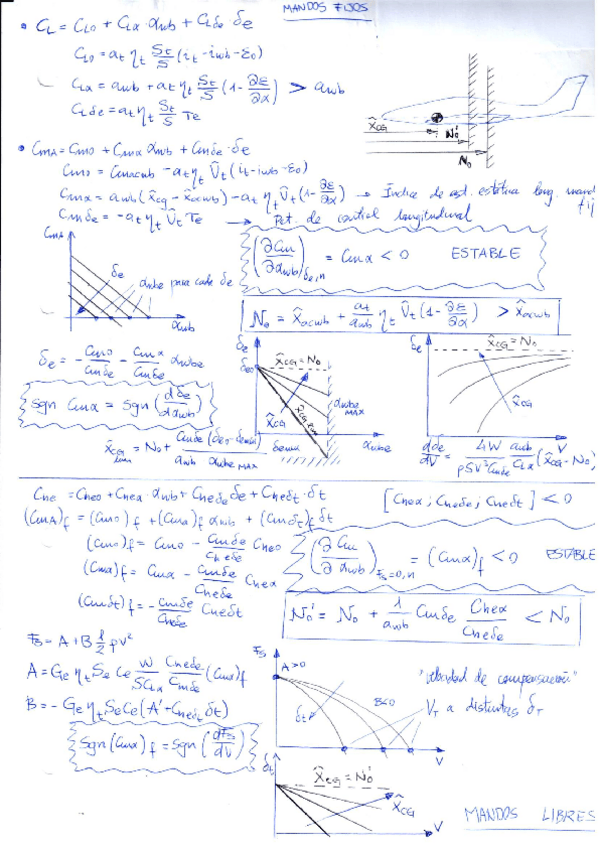 MANDOS FIJOS
• C_L = C_L0 + C_Lα α_wb + C_Lδe · δe
C_L0 = a_t η_t S_t/S (i_t - i_wb - ε_0)
C_Lα = a_wb + a_t η_t S_t/S (1 - ∂ε/∂α) > a_wb
C_Lδe = a_t η_t S_t/S τe
x̂_CG N_0'
N_0
• C_mA = C_m0 + C_mα α_wb + C_mδe · δe
C_m0 = C_macwb - a_t η_t V̂_t (i_t - i_wb - ε_0)
C_mα = a_wb (x̂_cg - x̂_acwb) - a_t η_t V̂_t (1 - ∂ε/∂α) → Índice de est. estática long. mand. fij
C_mδe = -a_t η_t V̂_t τe → Pot. de control longitudinal
C_mA
δe
α_wbe para cada δe
α_wb
(∂C_m/∂α_wb)_δe,n = C_mα < 0 ESTABLE
N_0 = x̂_acwb + a_t/a_wb η_t V̂_t (1 - ∂ε/∂α) > x̂_acwb
δe = - C_m0/C_mδe - C_mα/C_mδe α_wbe
sgn C_mα = sgn (dδe/dα_wb)
x̂_cg lim = N_0 + C_mδe (δe0 - δemin) / a_wb α_wbe MAX
δe
δe0
x̂_CG = N_0
x̂_CG
x̂_CG lim
α_wbe MAX
δemin
α_wbe
δe
x̂_CG = N_0
x̂_CG
V
dδe/dV = 4W/ρSV³C_mδe a_wb/C_Lα (x̂_CG - N_0)
C_he = C_he0 + C_heα · α_wb + C_heδe δe + C_heδt · δt
[C_heα ; C_heδe ; C_heδt] < 0
(C_mA)_f = (C_m0)_f + (C_mα)_f α_wb + (C_mδt)_f δt
(C_m0)_f = C_m0 - C_mδe/C_heδe C_he0
(C_mα)_f = C_mα - C_mδe/C_heδe C_heα
(C_mδt)_f = - C_mδe/C_heδe C_heδt
(∂C_m/∂α_wb)_Fs=0,n = (C_mα)_f < 0 ESTABLE
N_0' = N_0 + 1/a_wb C_mδe C_heα/C_heδe < N_0
F_s = A + B ½ ρV²
A = -G_e η_t S_e c_e W/SC_Lα C_heδe/C_mδe (C_mα)_f
B = - G_e η_t S_e c_e (A' - C_heδt δt)
sgn (C_mα)_f = sgn (dFs/dV)
F_s
A>0
B<0
δt
V
"velocidad de compensación"
V_T a distintas δ_T
δt
x̂_CG = N_0'
x̂_CG
V
MANDOS LIBRES